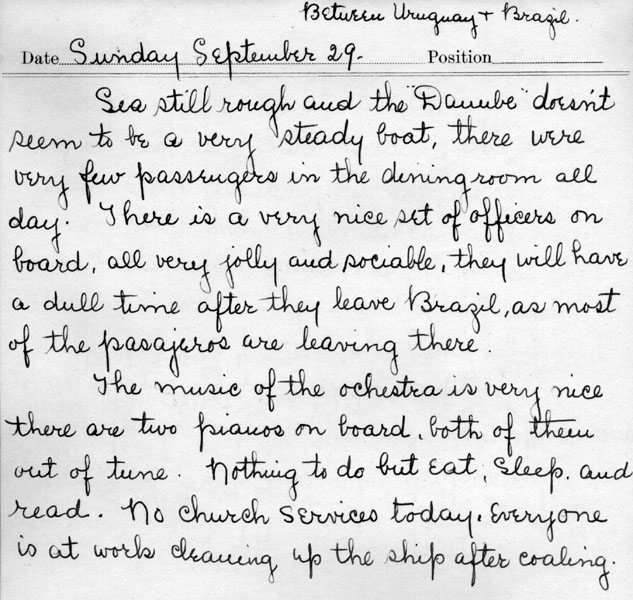 Between Uruguay + Brazil.
Date Sunday September 29. Position
Sea still rough and the "Danube" doesn't
seem to be a very steady boat, there were
very few passengers in the diningroom all
day. There is a very nice set of officers on
board, all very jolly and sociable, they will have
a dull time after they leave Brazil, as most
of the pasajeros are leaving there.
The music of the ochestra is very nice
there are two pianos on board, both of them
out of tune. Nothing to do but eat, sleep, and
read. No church services today. Everyone
is at work cleaning up the ship after coaling.